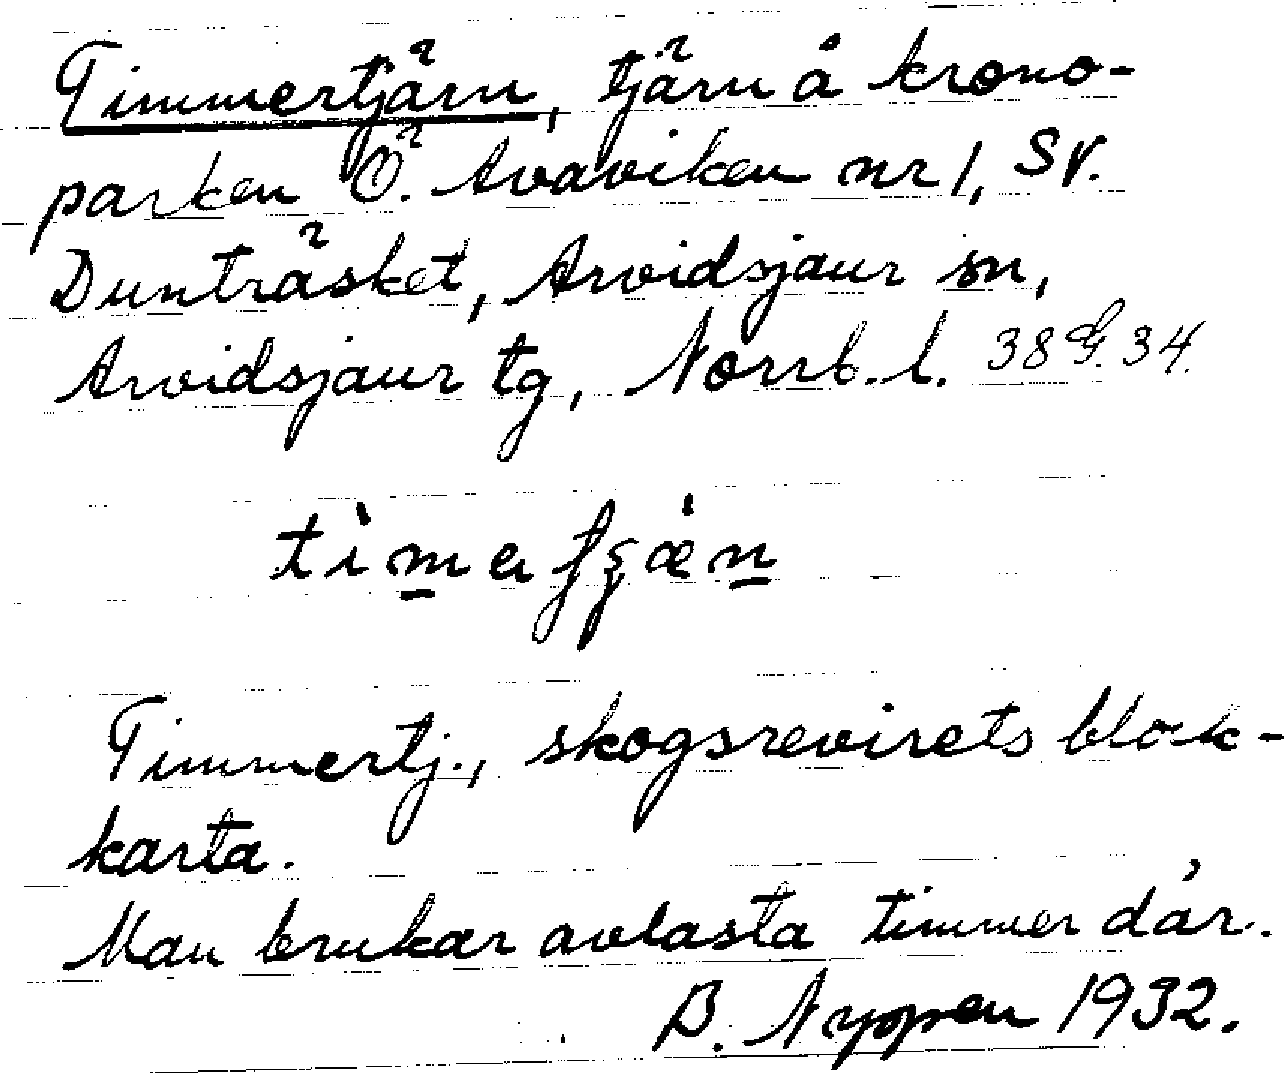 Timmertjärn, tjärn å krono-
parken Ö. Avaviken nr 1, SV.
Dunträsket, Arvidsjaur sn,
Arvidsjaur tg, Norrb. l. 38 G. 34.
Timmertj., skogsrevirets block-
karta.
Man brukar avlasta timmer där.
B. Nyppen 1932.